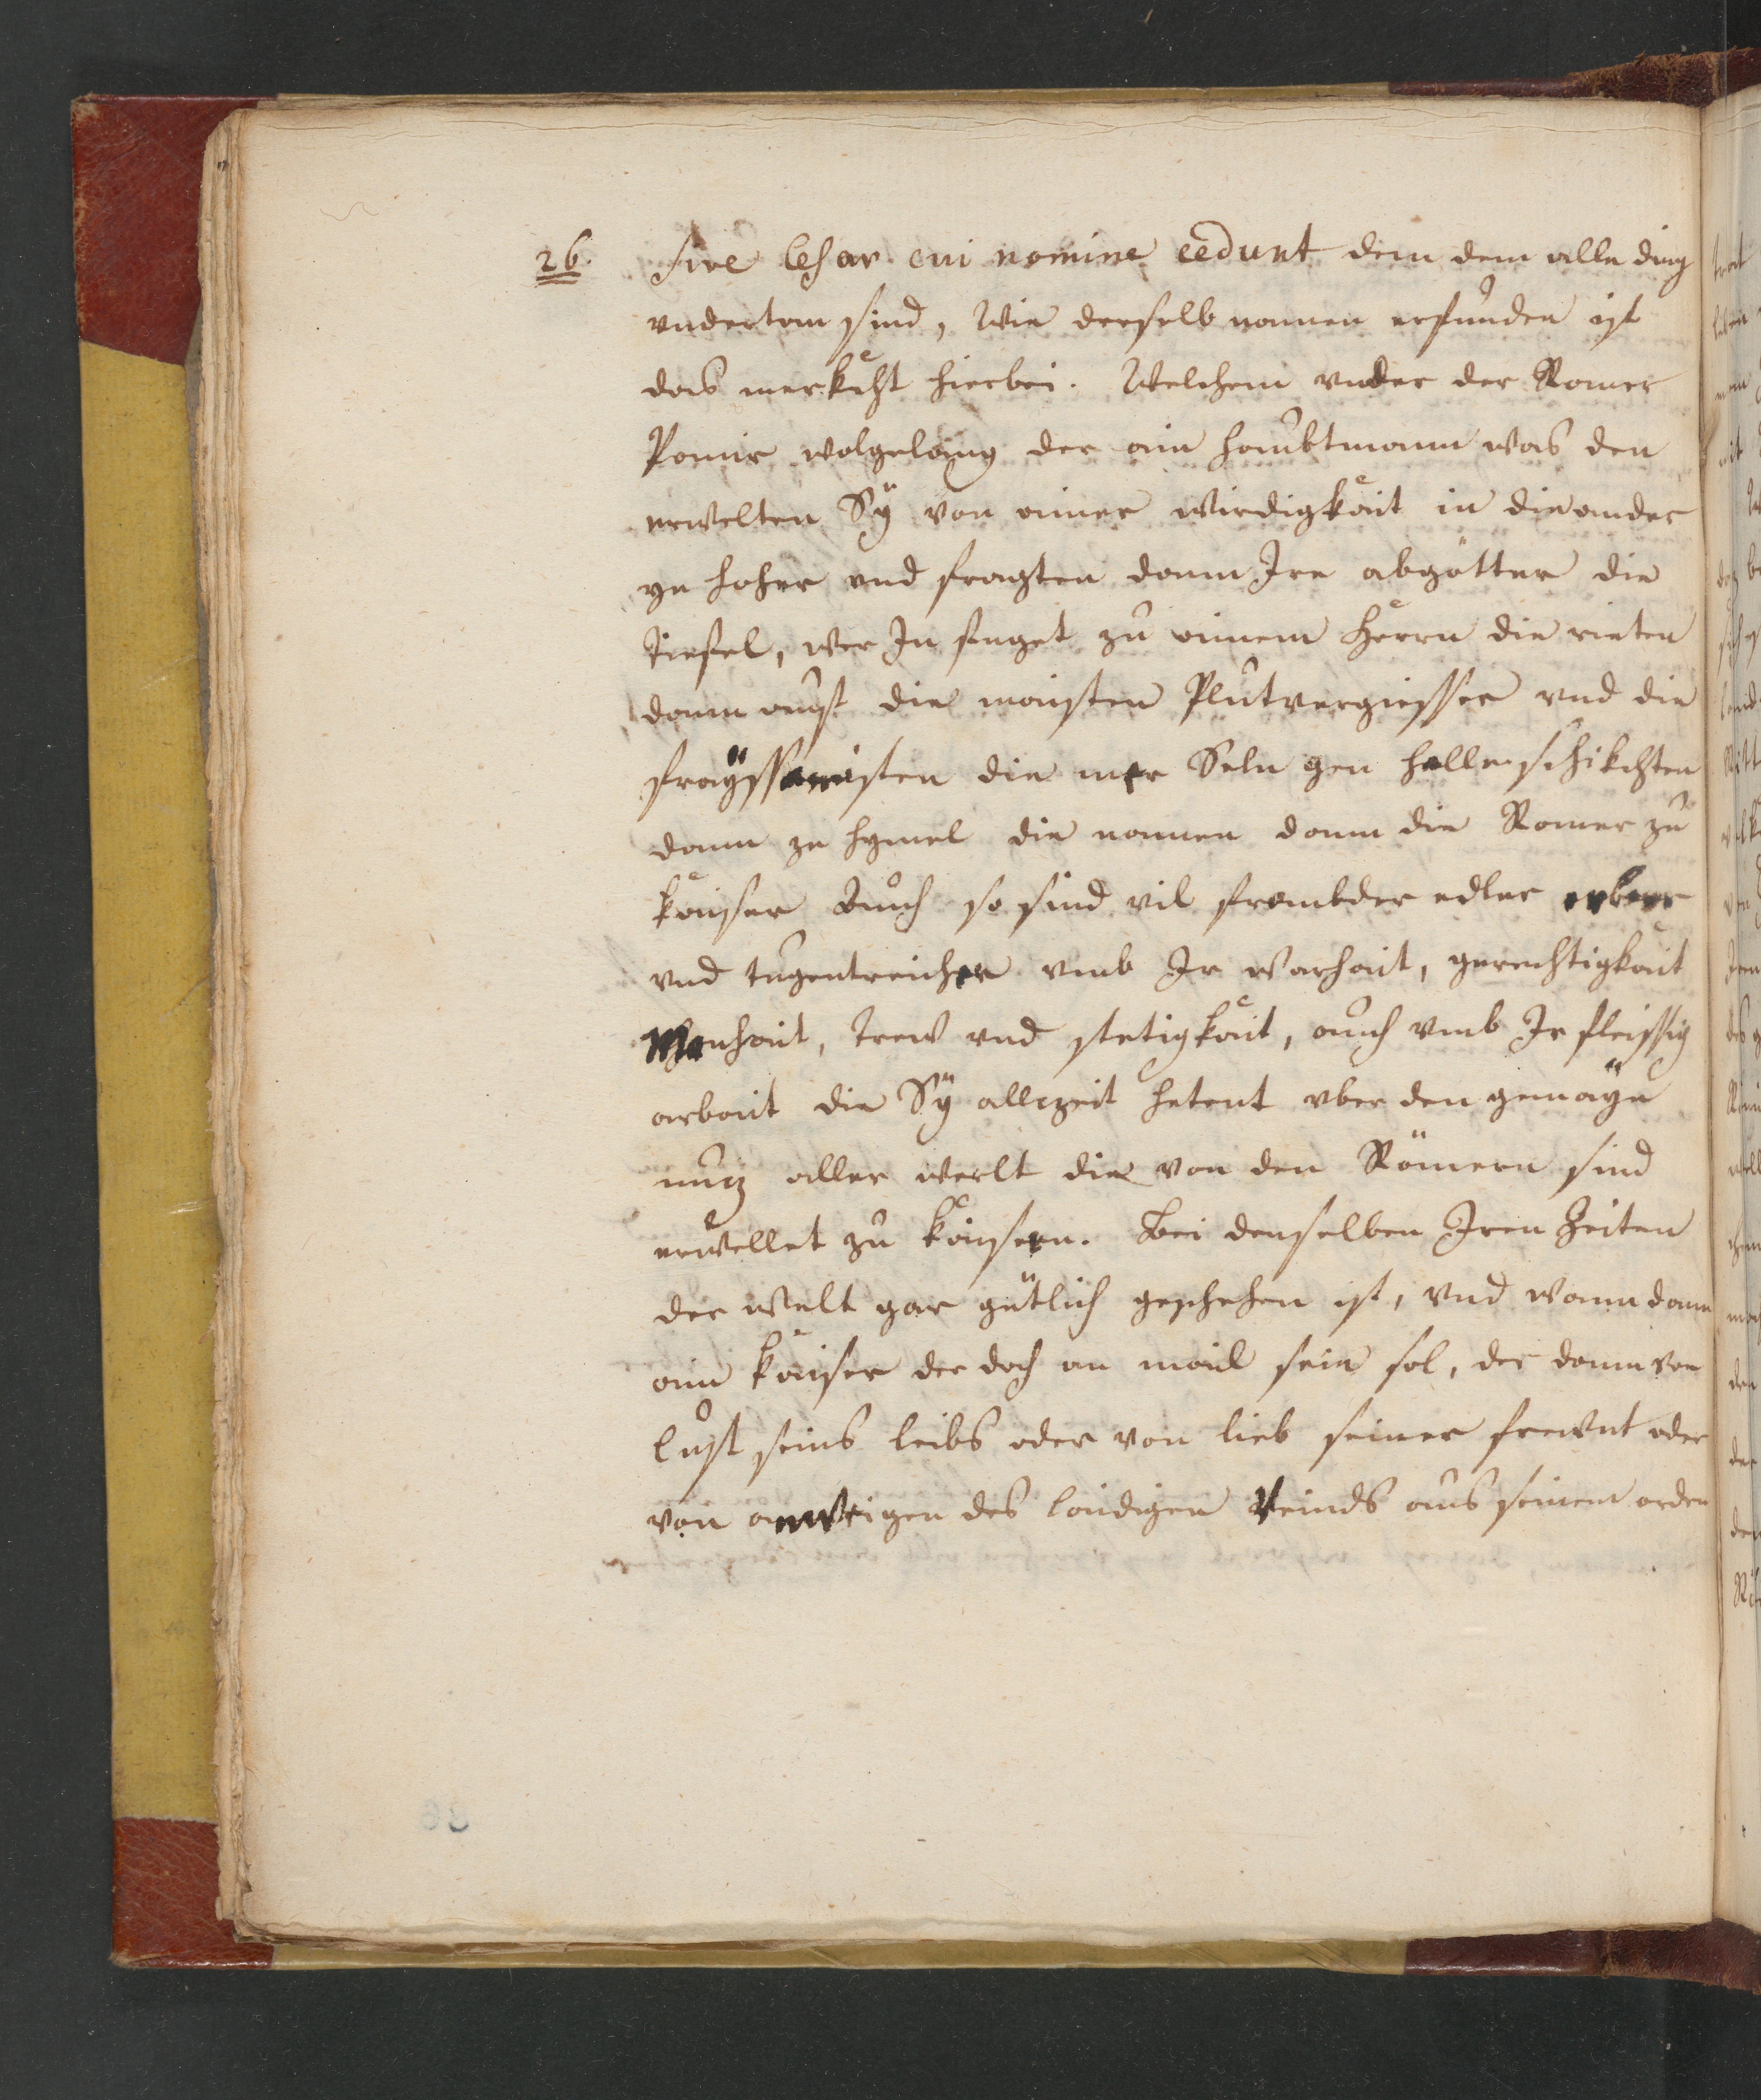 26. sive Cesar cui nomine cedunt dem dem alle ding
undertan sind, Wie derselb namen erfunden ist
das merkcht hierbei. Welchem under der Romer
Panir wolgelaing der ain haubtmann was den
erwelten Sÿ von ainer wirdigkait in die ander
ye hoher und fragten dann Ire abgötter die
tiefel, wer In fuget zu ainem Herrn die rieten
dann auf die maisten Plutvergiesser und die
fraÿssamisten die mer Seln gen helle schikchten
dann ze hymel die namen dann die Romer zu
kaiser Auch so sind vil frembder edler erberr
und tugentreicher umb Ir warhait, gerechtigkait
Manhait, trew und stetigkait, auch umb Ir fleissig
arbait die Sÿ allczeit hetent uber den gemaÿn
nucz aller werlt die von den Römern sind
erwellet zu kaisern. Bei denselben Iren Zeiten
der welt gar gütlich geschehen ist, und wann dann
ain kaiser der doch an mail sein sol, der dann von
lust seins leibs oder von lieb seiner frewnt oder
von anweigen des laidigen Veinds aus seinem orden